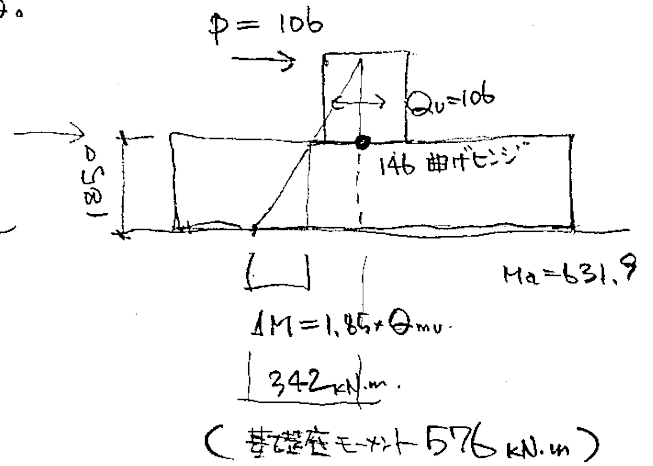 す。
P = 106
Qu=106
1850
146 曲げヒンジ
Ma=631.9
ΔM=1.85×Qmu.
342kN.m.
(基礎底モーメント576kN.m)